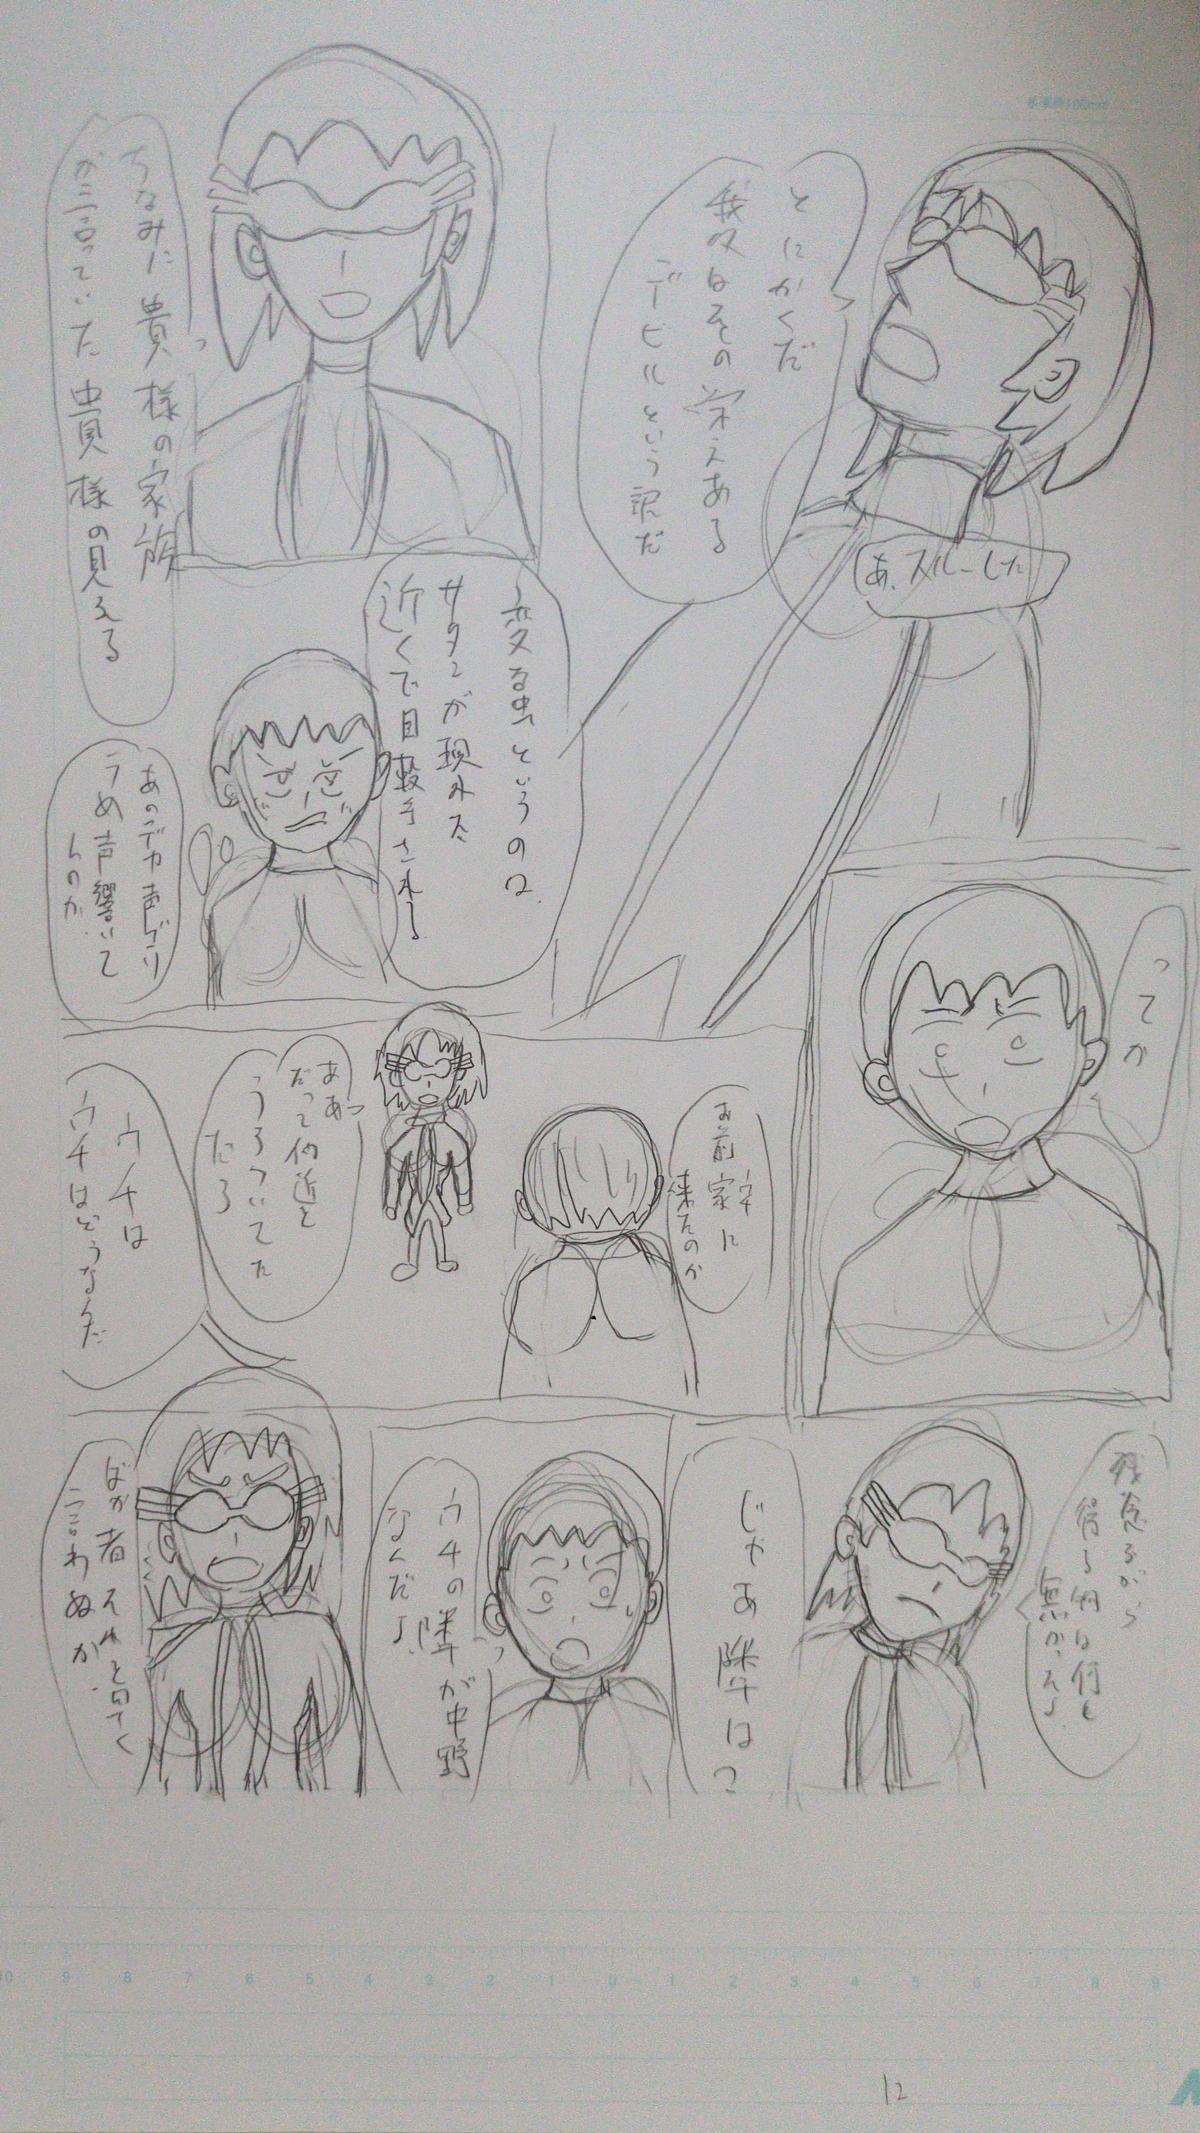 とにかくだ
我々はその栄えある
デビルという訳だ
あ、スルーした
ちなみに貴様の家族
が言っていた貴様の見える
変な虫というのは
サタンが現れる
近くで目撃される
あのデカ声ゲリ
うめ声響いて
んのか
ってか
お前家に
来たのか
ああ
だって付近を
うろついてた
だろ
ウチは
ウチはどうなんだ
残念ながら
得る物は何も
無かったよ
じゃあ隣は?
ウチの隣が中野
なんだよ
ばか者それを早く
言わぬか
12